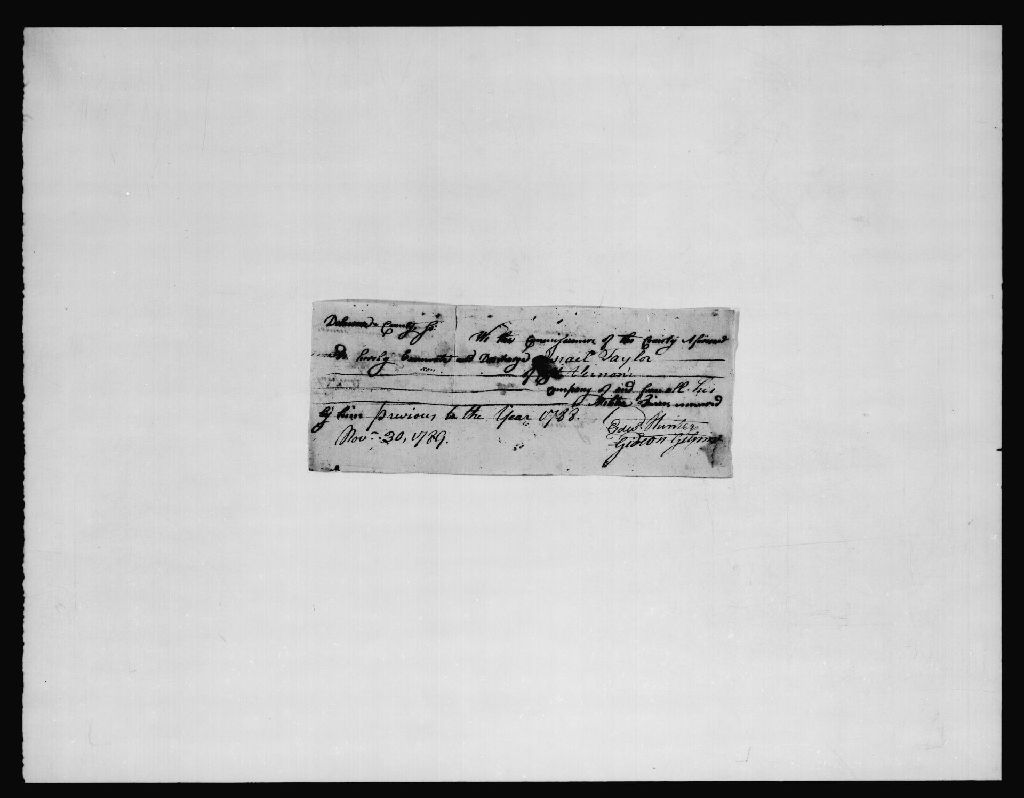 Delaware County Ss.
We the Commissioners of the County Aforesaid
do hereby Exonerate and Discharge Israel Taylor
of Vernon's
Company of and from all the
Militia Fines incurred
by him previous to the Year 1788.
Novr. 30, 1789.
Edwd. Hunter
Gideon